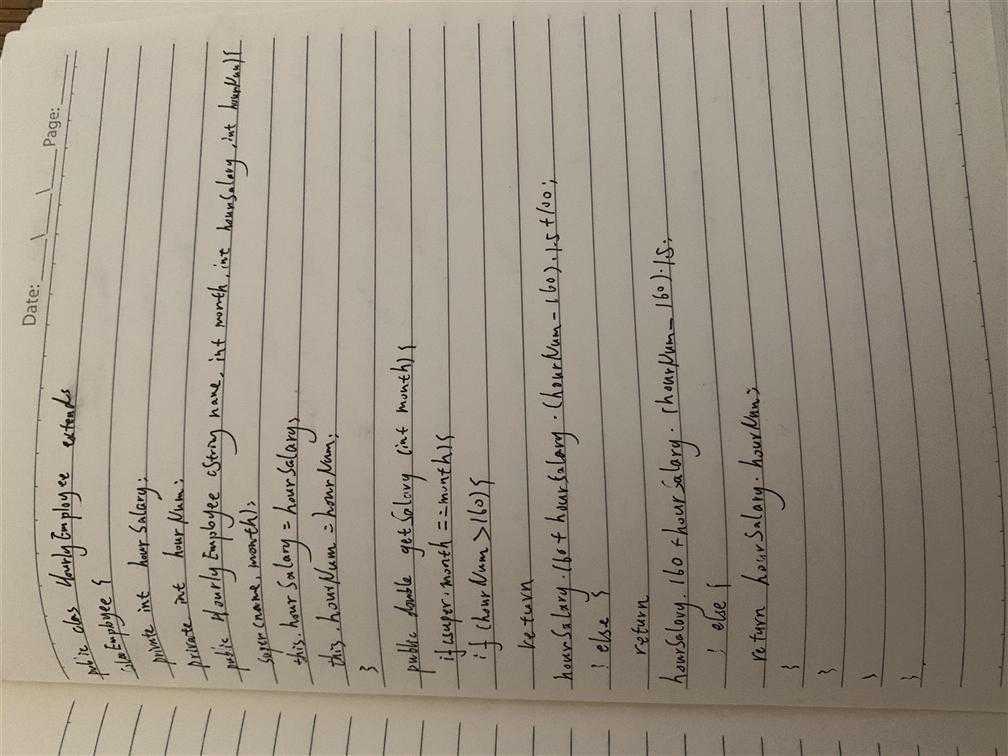 Date: ___ \ ___ \ ___ Page: ___
public class HourlyEmployee extends
Employee {
private int hourSalary;
private int hourNum;
public HourlyEmployee (String name, int month, int hourSalary, int hourNum) {
super (name, month);
this.hourSalary = hourSalary;
this.hourNum = hourNum;
}
public double getSalary (int month) {
if (super.month == month) {
if (hourNum > 160) {
return
hourSalary · 160 + hourSalary · (hourNum - 160) · 1.5 + 100;
} else {
return
hourSalary · 160 + hourSalary · (hourNum - 160) · 1.5;
} else {
return hourSalary · hourNum;
}
}
}
}